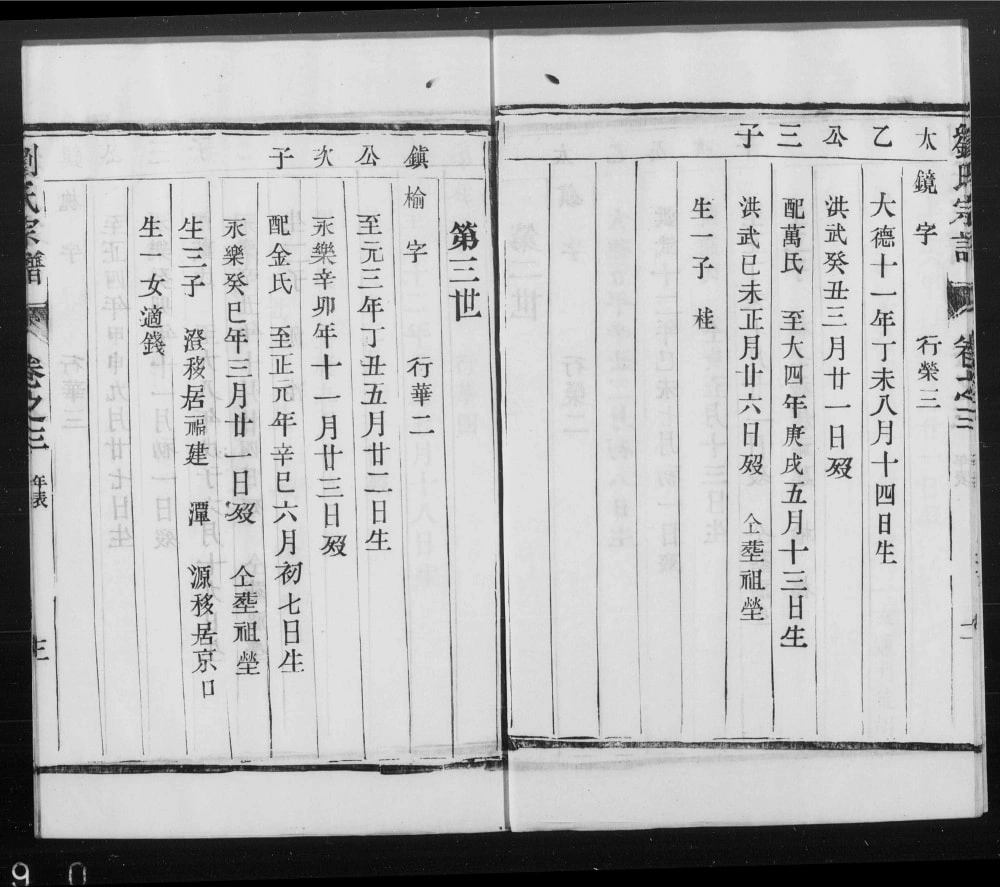 劉氏宗譜 卷之三 年表
太鏡 字 行榮三
乙 大德十一年丁未八月十四日生
公 洪武癸丑三月廿一日歿
三 配萬氏 至大四年庚戌五月十三日生
子 洪武己未正月廿六日歿 仝塟祖塋
生一子 桂
第三世
鎮榆 字 行華二
公 至元三年丁丑五月廿二日生
次 永樂辛卯年十一月廿三日歿
子 配金氏 至正元年辛巳六月初七日生
永樂癸巳年三月廿一日歿 仝塟祖塋
生三子 澄移居福建 潭 源移居京口
生一女適錢
劉氏宗譜 卷之三 年表
9 0